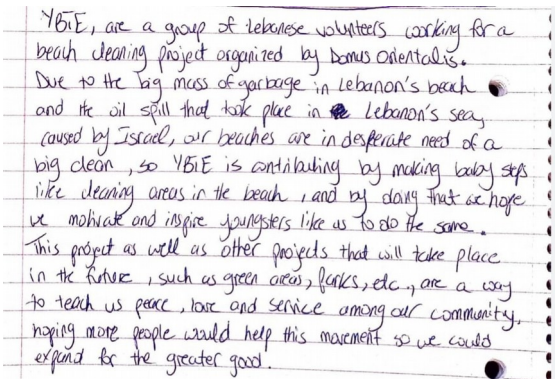 YBiE, are a group of Lebanese volunteers working for a
beach cleaning project organized by Domus Orientalis.
Due to the big mass of garbage in Lebanon's beach
and the oil spill that took place in Lebanon's sea,
caused by Israel, our beaches are in desperate need of a
big clean, so YBiE is contributing by making baby steps
like cleaning areas in the beach, and by doing that we hope
we motivate and inspire youngsters like us to do the same.
This project as well as other projects that will take place
in the future, such as green areas, parks, etc., are a way
to teach us peace, love and service among our community,
hoping more people would help this movement so we could
expand for the greater good.